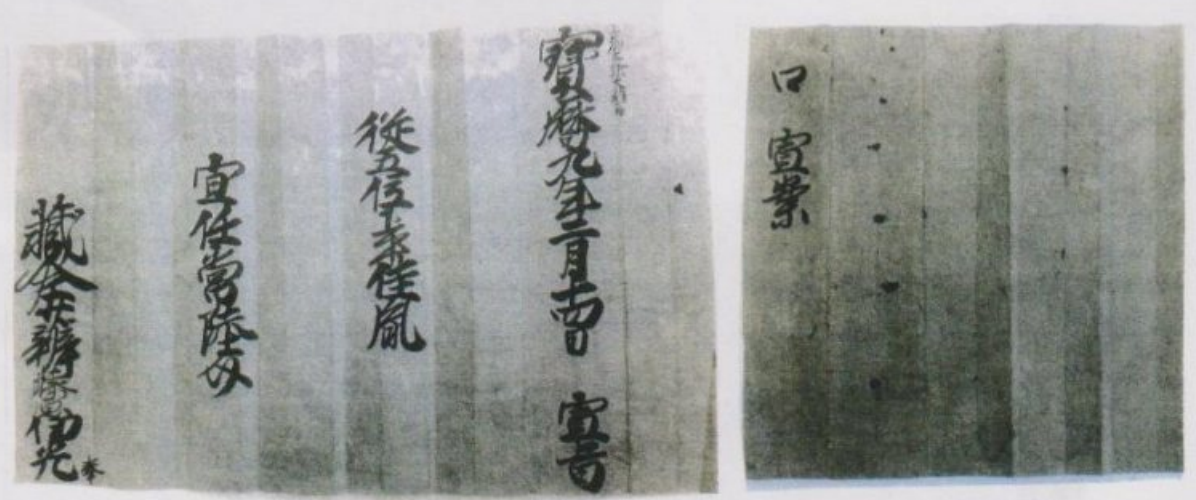 口 宣案
寶暦九年二月十四日 宣旨
從五位下平胤
宜任常陸介
藏人辨藤原伊光奉